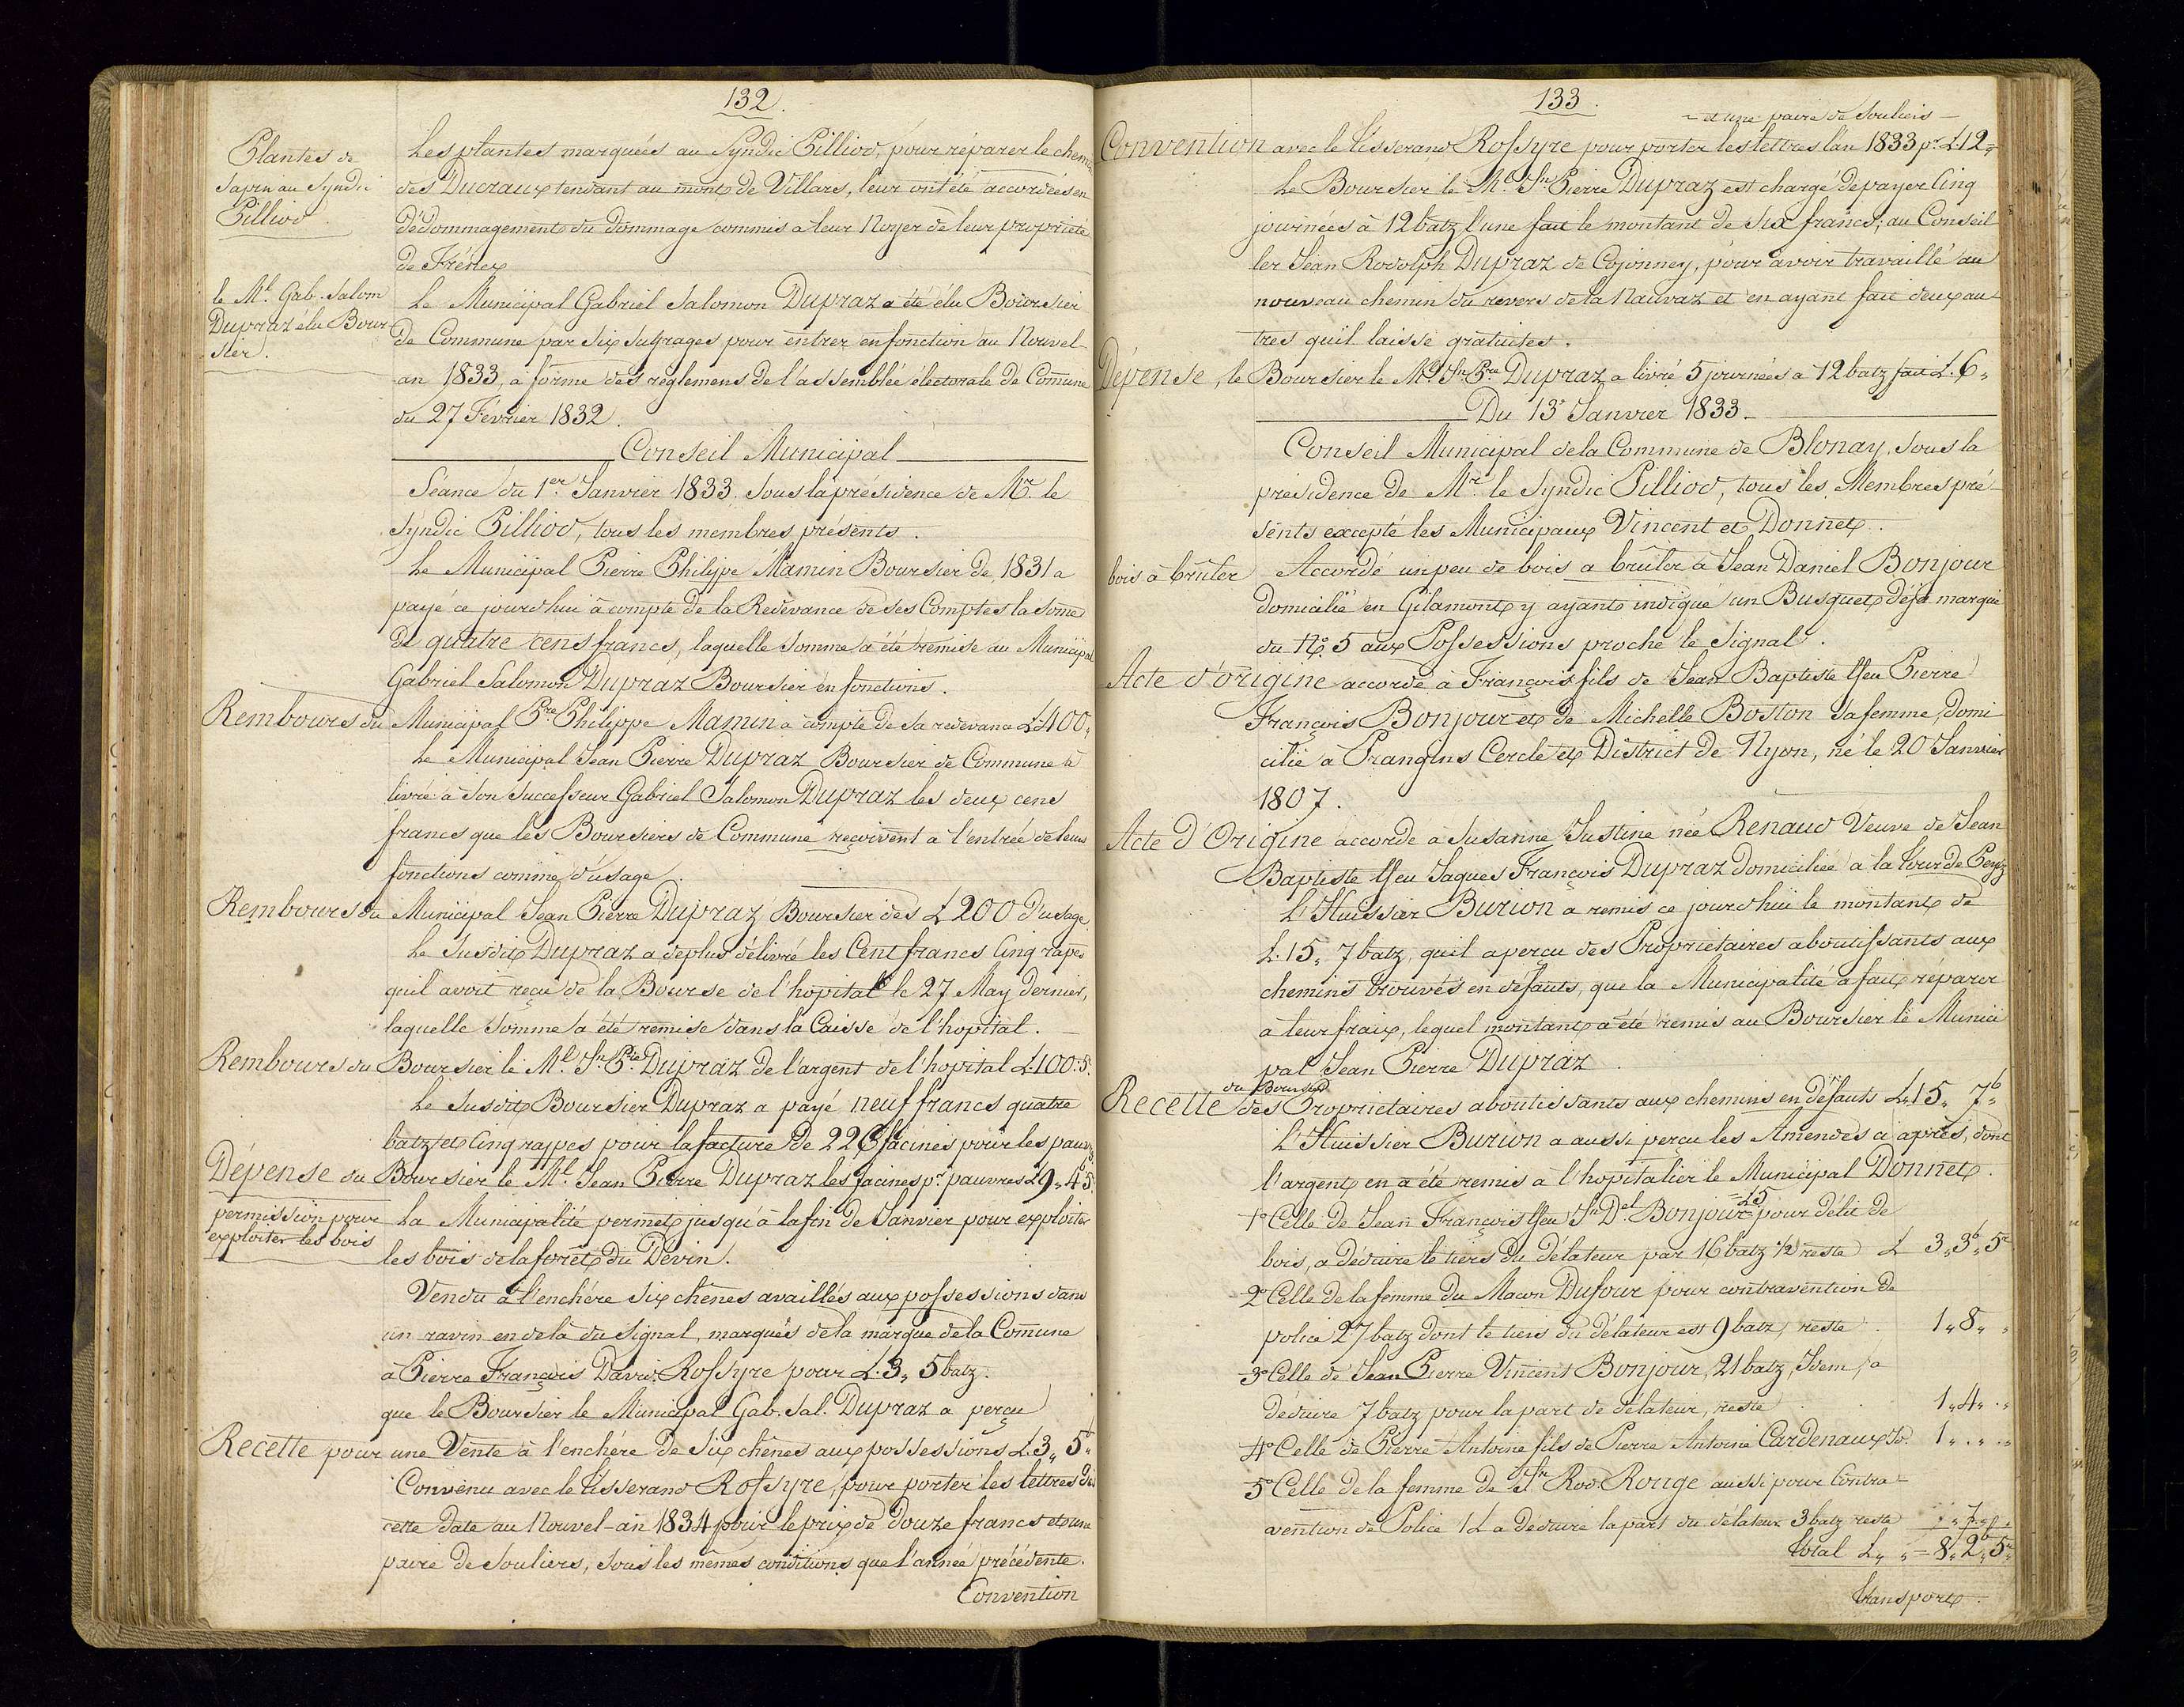 132.
Plantes de
sapin au Syndic
Pilliod.
Les plantes marquées au Syndic Pilliod, pour réparer le chemin
des Ducraux tendant au mont de Villars, leur ont été accordées en
dédommagement du dommage commis à leur Noyer de leur propriété
de
le Ml. Gab. Salom
Dupraz élu Bour
sier.
Le Municipal Gabriel Salomon Dupraz a été élu Boursier
de Commune par six sufrages pour entrer en fonction au Nouvel-
an 1833, à forme des réglemens de l'assemblée électorale de Comune
du 27 Février 1832.
Conseil Municipal
Séance du 1er. Janvier 1833. Sous la présidence de Mr. le
Syndic Pilliod, tous les membres présents.
Le Municipal Pierre Philippe Mamin Boursier de 1831 a
payé ce jourd'hui à compte de la Redevance de ses Comptes la Some
de quatre cens francs, laquelle somme a été remise au Municipal
Gabriel Salomon Dupraz Boursier en fonctions.
Rembours du Municipal Pre. Philippe Mamin à compte de sa redevance L.400„
Le Municipal Jean Pierre Dupraz Boursier de Commune à
livré à son successeur Gabriel Salomon Dupraz les deux cens
francs que les Boursiers de Commune reçoivent à l'entrée de leurs
fonctions comme d'usage.
Rembours du Municipal Jean Pierre Dupraz Boursier des L 200 d'usage.
Le Susdit Dupraz a deplus délivré les Cent francs cinq rapes
quil avoit reçu de la Bourse de l'hopital le 27 May dernier,
laquelle somme a été remise dans la Caisse de l'hopital.
Rembours du Boursier le Ml. Jn. Pre. Dupraz de l'argent de l'hopital L.100.5.
Le Susdit Boursier Dupraz a payé neuf francs quatre
batz et Cinq rappes pour la facture de 226 facines pour les pauvres
Dépense du Boursier le Ml. Jean Pierre Dupraz les facines pr. pauvres L9„4„5.
permission pour
exploiter les bois
La Municipalité permet jusqu'à la fin de Janvier pour exploiter
les bois de la forêt du Dévin.
Vendu à l'enchére six chênes availlés aux possessions dans
un ravin en delà du Signal, marqués de la marque de la Comune
à Pierre François David Rossyre pour L.3„ 5 batz.
que le Boursier le Municipal Gab. Sal. Dupraz a perçu
Recette pour une Vente à l'enchére de six chênes aux possessions L.3„ 5b„
Convenu avec le tisserand Rossyre, pour porter les lettres dès
cette date au Nouvel-an 1834 pour le prix de douze francs et une
paire de souliers, sous les mêmes conditions que l'année précédente.
Convention
133.
- et une paire de Souliers -
Convention avec le tisserand Rossyre pour porter les lettres l'an 1833 pr. L.12„
Le Boursier le Ml. Jn. Pierre Dupraz est chargé de payer Cinq
journées à 12 batz l'une fait le montant de six francs; au Conseil
ler Jean Rodolph Dupraz de Cojonney, pour avoir travaillé au
nouveau chemin du revers de la Nauvaz et en ayant fait deux au-
tres qu'il laisse gratuites.
Dépense, le Boursier le Ml. Jn. Pre. Dupraz a livré 5 journées à 12 batz fait L.6„
Du 13e Janvier 1833.
Conseil Municipal de la Commune de Blonay, sous la
présidence de Mr. le Syndic Pilliod, tous les Membres pré-
sents excepté les Municipaux Vincent et Donnet.
bois à brûler
Accordé un peu de bois à brûler à Jean Daniel Bonjour
domicilié en Gilamont y ayant indiqué un Busquet déjà marqué
du No. 5 aux Possessions proche le Signal.
Acte d'origine accordé à François fils de Jean Baptiste ffeu Pierre
François Bonjour et de Michelle Boston sa femme, domi
cilié à Prangins Cercle et District de Nyon, né le 20 Janvier
1807.
Acte d'Origine accordé a Susanne Justine née Renaud Veuve de Jean
Baptiste ffeu Jaques François Dupraz domiciliée à la tour de Peylz
L'Huissier Burion a remis ce jourd'hui le montant de
L.15„ 7 batz, quil a perçu des Propriétaires aboutissants aux
chemins trouvés en défauts, que la Municipalité a fait réparer
à leur fraix, lequel montant a été remis au Boursier le Munici
pal Jean Pierre Dupraz.
du Boursier
Recette des Propriétaires aboutissants aux chemins en défauts L.15„ 7b„
L'Huissier Burion a aussi perçu les Amendes ci après, dont
l'argent en a été remis à l'hopitalier le Municipal Donnet.
=L5
1o Celle de Jean François ffeu Jn. Del. Bonjour pour délit de
bois, a déduire le tiers du délateur par 16 batz 1/2 reste L 3„3b„5r
2o Celle de la femme du Macon Dufour pour contravention de
police 27 batz dont le tiers du délateur est 9 batz, reste 1„8„„
3o Celle de Jean Pierre Vincent Bonjour, 21 batz, Idem, à
déduire 7 batz pour la part de délateur, reste 1„4„.„
4o Celle de Pierre Antoine fils de Pierre Antoine Cardenaux Id. 1„.„.„
5o Celle de la femme de Jn. Rod. Rouge aussi pour Contra-
vention de Police 1L à deduire la part du délateur 3 batz reste .„7„.„
total L„ „=8„2b„5r„
transport.